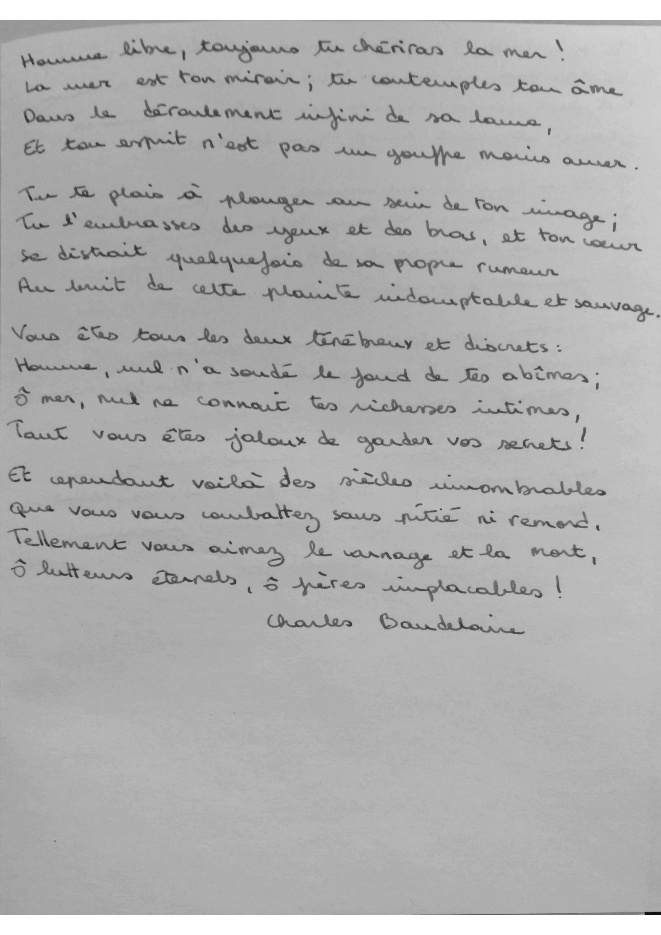 Homme libre, toujours tu chériras la mer !
La mer est ton miroir ; tu contemples ton âme
Dans le déroulement infini de sa lame,
Et ton esprit n'est pas un gouffre moins amer.
Tu te plais à plonger au sein de ton image ;
Tu l'embrasses des yeux et des bras, et ton cœur
Se distrait quelquefois de sa propre rumeur
Au bruit de cette plainte indomptable et sauvage.
Vous êtes tous les deux ténébreux et discrets :
Homme, nul n'a sondé le fond de tes abîmes ;
Ô mer, nul ne connaît tes richesses intimes,
Tant vous êtes jaloux de garder vos secrets !
Et cependant voilà des siècles innombrables
Que vous vous combattez sans pitié ni remord,
Tellement vous aimez le carnage et la mort,
Ô lutteurs éternels, ô frères implacables !
Charles Baudelaire